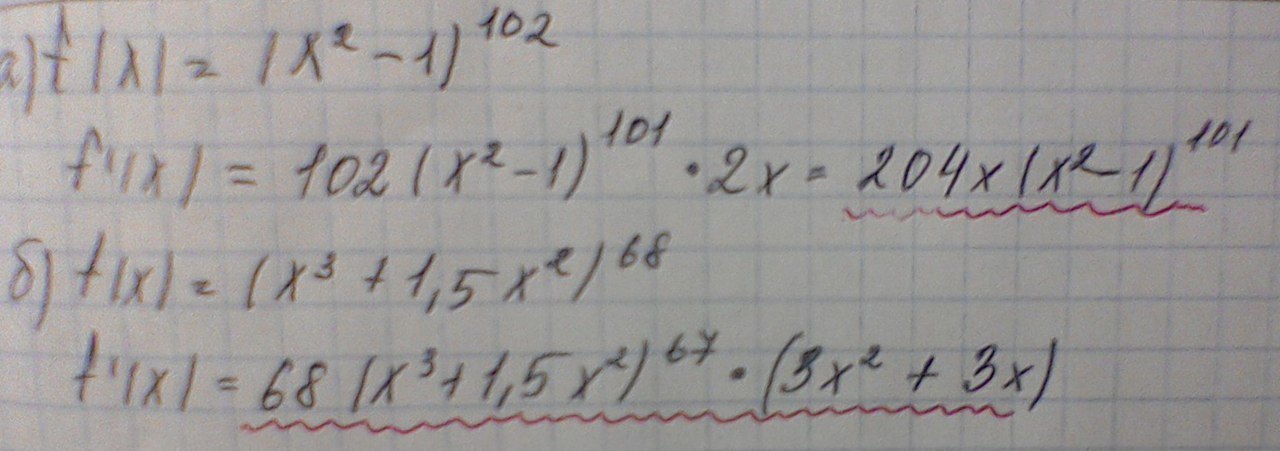 а) f(x) = (x² - 1)¹⁰²
f'(x) = 102(x² - 1)¹⁰¹ · 2x = 204x(x² - 1)¹⁰¹
б) f(x) = (x³ + 1,5x²)⁶⁸
f'(x) = 68(x³ + 1,5x²)⁶⁷ · (3x² + 3x)